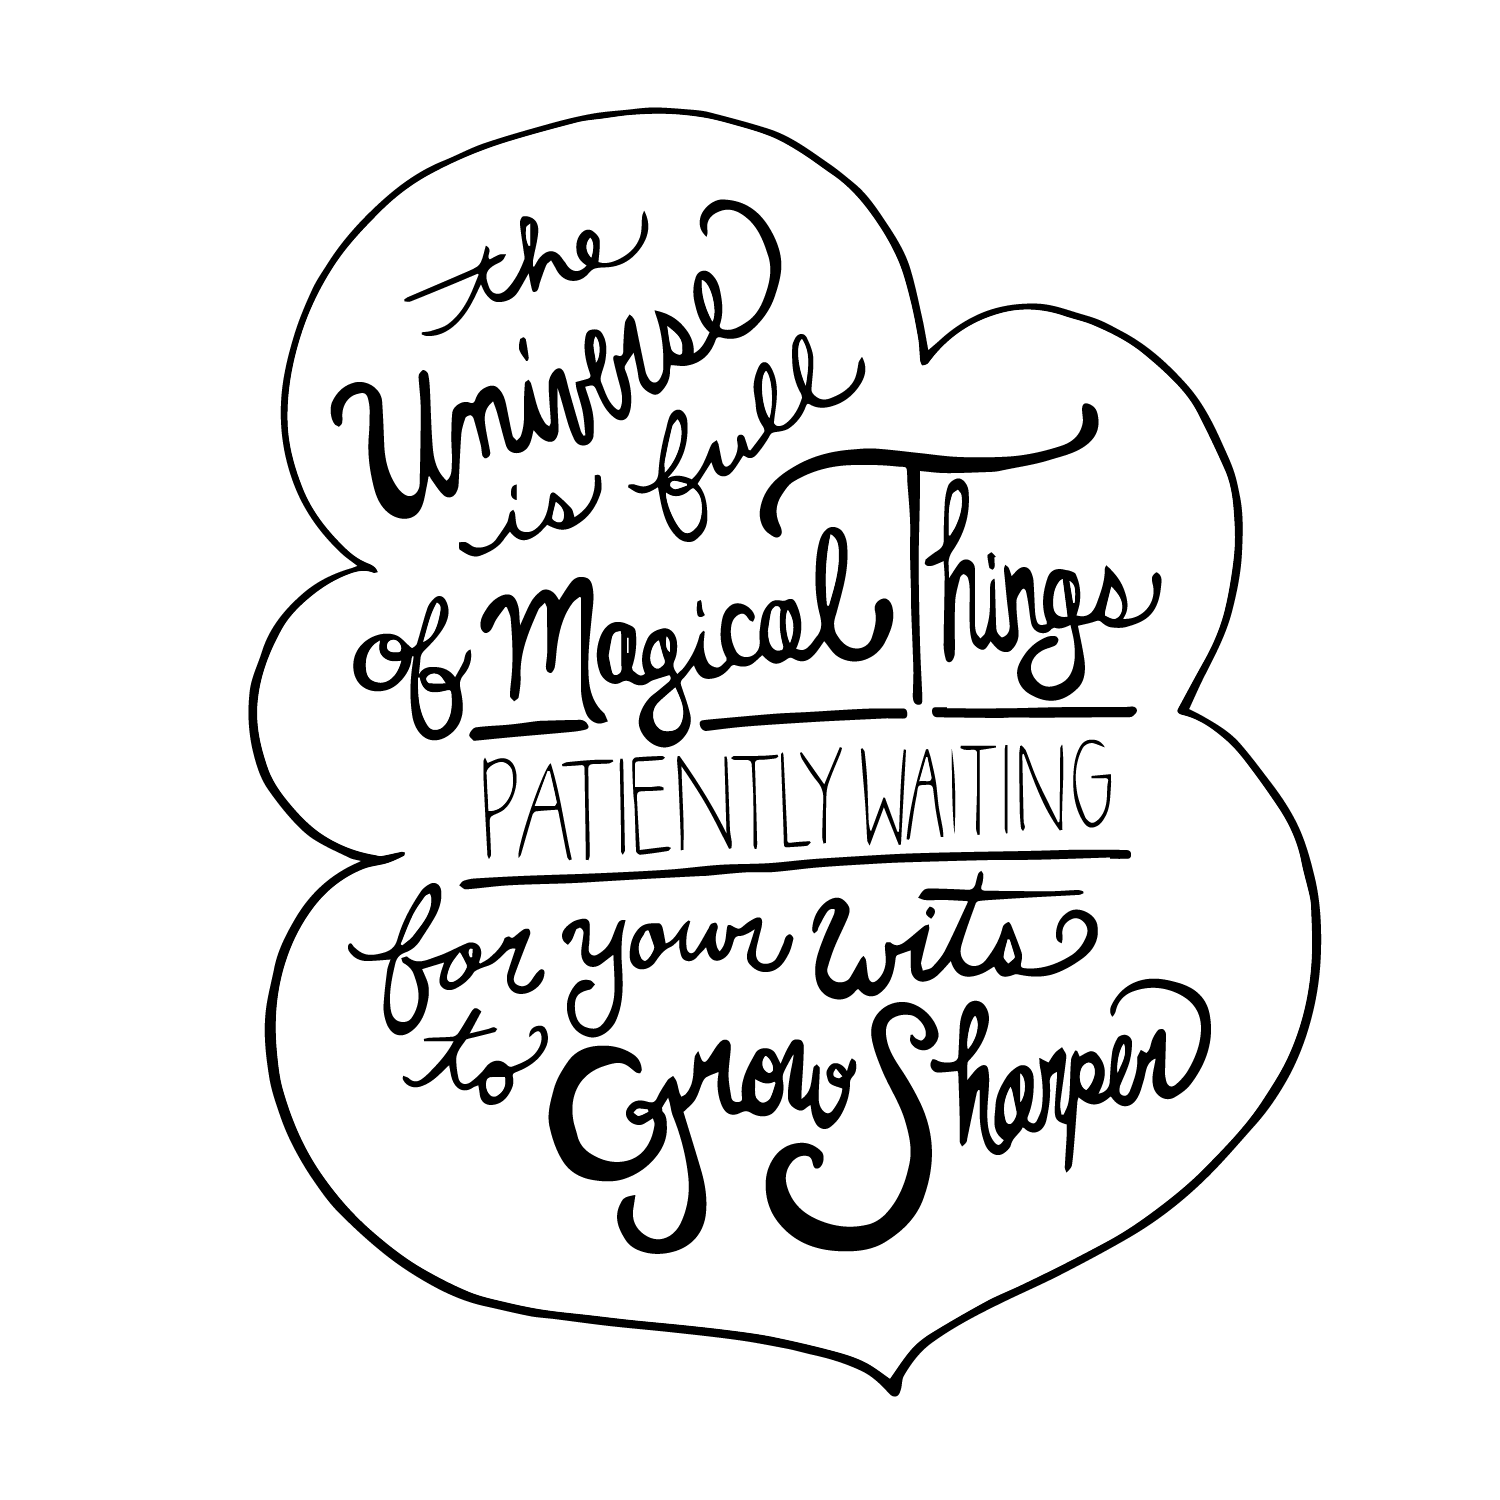 the
Universe
is full
of Magical Things
PATIENTLY WAITING
for your Wits
to Grow Sharper